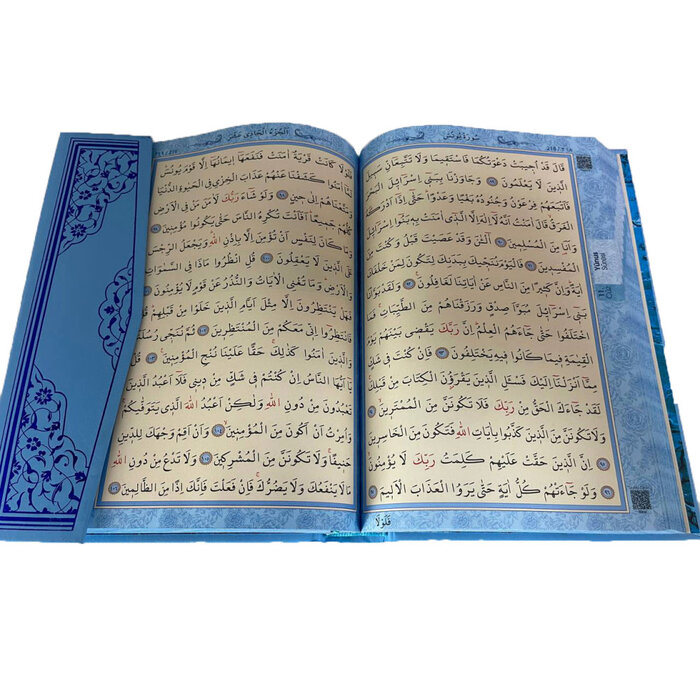 سُورَةُ يُونُسَ
قَالَ قَدْ اُجِيبَتْ دَعْوَتُكُمَا فَاسْتَقِيمَا وَلَا تَتَّبِعَانِّ سَبِيلَ
الَّذِينَ لَا يَعْلَمُونَ ﴿٨٩﴾ وَجَاوَزْنَا بِبَنِى اِسْرَائِلَ الْبَحْرَ
فَاَتْبَعَهُمْ فِرْعَوْنُ وَجُنُودُهُ بَغْيًا وَعَدْوًا حَتّٰى اِذَا اَدْرَكَهُ
الْغَرَقُ قَالَ اٰمَنْتُ اَنَّهُ لَا اِلٰهَ اِلَّا الَّذِى اٰمَنَتْ بِهِ بَنُوا اِسْرَائِلَ
وَاَنَا مِنَ الْمُسْلِمِينَ ﴿٩٠﴾ اٰلْـٰٔنَ وَقَدْ عَصَيْتَ قَبْلُ وَكُنْتَ مِنَ
الْمُفْسِدِينَ ﴿٩١﴾ فَالْيَوْمَ نُنَجِّيكَ بِبَدَنِكَ لِتَكُونَ لِمَنْ خَلْفَكَ
اٰيَةً وَاِنَّ كَثِيرًا مِنَ النَّاسِ عَنْ اٰيَاتِنَا لَغَافِلُونَ ﴿٩٢﴾ وَلَقَدْ بَوَّاْنَا
بَنِى اِسْرَائِلَ مُبَوَّاَ صِدْقٍ وَرَزَقْنَاهُمْ مِنَ الطَّيِّبَاتِ فَمَا
اخْتَلَفُوا حَتّٰى جَاءَهُمُ الْعِلْمُ اِنَّ رَبَّكَ يَقْضِى بَيْنَهُمْ يَوْمَ
الْقِيٰمَةِ فِيمَا كَانُوا فِيهِ يَخْتَلِفُونَ ﴿٩٣﴾ فَاِنْ كُنْتَ فِى شَكٍّ
مِمَّا اَنْزَلْنَا اِلَيْكَ فَسْـَٔلِ الَّذِينَ يَقْرَؤُنَ الْكِتَابَ مِنْ قَبْلِكَ
لَقَدْ جَاءَكَ الْحَقُّ مِنْ رَبِّكَ فَلَا تَكُونَنَّ مِنَ الْمُمْتَرِينَ ﴿٩٤﴾
وَلَا تَكُونَنَّ مِنَ الَّذِينَ كَذَّبُوا بِاٰيَاتِ اللّٰهِ فَتَكُونَ مِنَ الْخَاسِرِينَ
﴿٩٥﴾ اِنَّ الَّذِينَ حَقَّتْ عَلَيْهِمْ كَلِمَتُ رَبِّكَ لَا يُؤْمِنُونَ
﴿٩٦﴾ وَلَوْ جَاءَتْهُمْ كُلُّ اٰيَةٍ حَتّٰى يَرَوُا الْعَذَابَ الْاَلِيمَ ﴿٩٧﴾
فَلَوْلَا
Yûnus
Sûresi
اَلْجُزْءُ الْحَادِى عَشَرَ
فَلَوْلَا كَانَتْ قَرْيَةٌ اٰمَنَتْ فَنَفَعَهَا اِيمَانُهَا اِلَّا قَوْمَ يُونُسَ
لَمَّا اٰمَنُوا كَشَفْنَا عَنْهُمْ عَذَابَ الْخِزْىِ فِى الْحَيٰوةِ الدُّنْيَا
وَمَتَّعْنَاهُمْ اِلٰى حِينٍ ﴿٩٨﴾ وَلَوْ شَاءَ رَبُّكَ لَاٰمَنَ مَنْ فِى الْاَرْضِ
كُلُّهُمْ جَمِيعًا اَفَاَنْتَ تُكْرِهُ النَّاسَ حَتّٰى يَكُونُوا مُؤْمِنِينَ ﴿٩٩﴾
وَمَا كَانَ لِنَفْسٍ اَنْ تُؤْمِنَ اِلَّا بِاِذْنِ اللّٰهِ وَيَجْعَلُ الرِّجْسَ
عَلَى الَّذِينَ لَا يَعْقِلُونَ ﴿١٠٠﴾ قُلِ انْظُرُوا مَاذَا فِى السَّمٰوَاتِ
وَالْاَرْضِ وَمَا تُغْنِى الْاٰيَاتُ وَالنُّذُرُ عَنْ قَوْمٍ لَا يُؤْمِنُونَ ﴿١٠١﴾
فَهَلْ يَنْتَظِرُونَ اِلَّا مِثْلَ اَيَّامِ الَّذِينَ خَلَوْا مِنْ قَبْلِهِمْ قُلْ
فَانْتَظِرُوا اِنِّى مَعَكُمْ مِنَ الْمُنْتَظِرِينَ ﴿١٠٢﴾ ثُمَّ نُنَجِّى رُسُلَنَا
وَالَّذِينَ اٰمَنُوا كَذٰلِكَ حَقًّا عَلَيْنَا نُنْجِ الْمُؤْمِنِينَ ﴿١٠٣﴾ قُلْ
يَا اَيُّهَا النَّاسُ اِنْ كُنْتُمْ فِى شَكٍّ مِنْ دِينِى فَلَا اَعْبُدُ الَّذِينَ
تَعْبُدُونَ مِنْ دُونِ اللّٰهِ وَلٰكِنْ اَعْبُدُ اللّٰهَ الَّذِى يَتَوَفّٰيكُمْ
وَاُمِرْتُ اَنْ اَكُونَ مِنَ الْمُؤْمِنِينَ ﴿١٠٤﴾ وَاَنْ اَقِمْ وَجْهَكَ لِلدِّينِ
حَنِيفًا وَلَا تَكُونَنَّ مِنَ الْمُشْرِكِينَ ﴿١٠٥﴾ وَلَا تَدْعُ مِنْ دُونِ اللّٰهِ
مَا لَا يَنْفَعُكَ وَلَا يَضُرُّكَ فَاِنْ فَعَلْتَ فَاِنَّكَ اِذًا مِنَ الظَّالِمِينَ ﴿١٠٦﴾